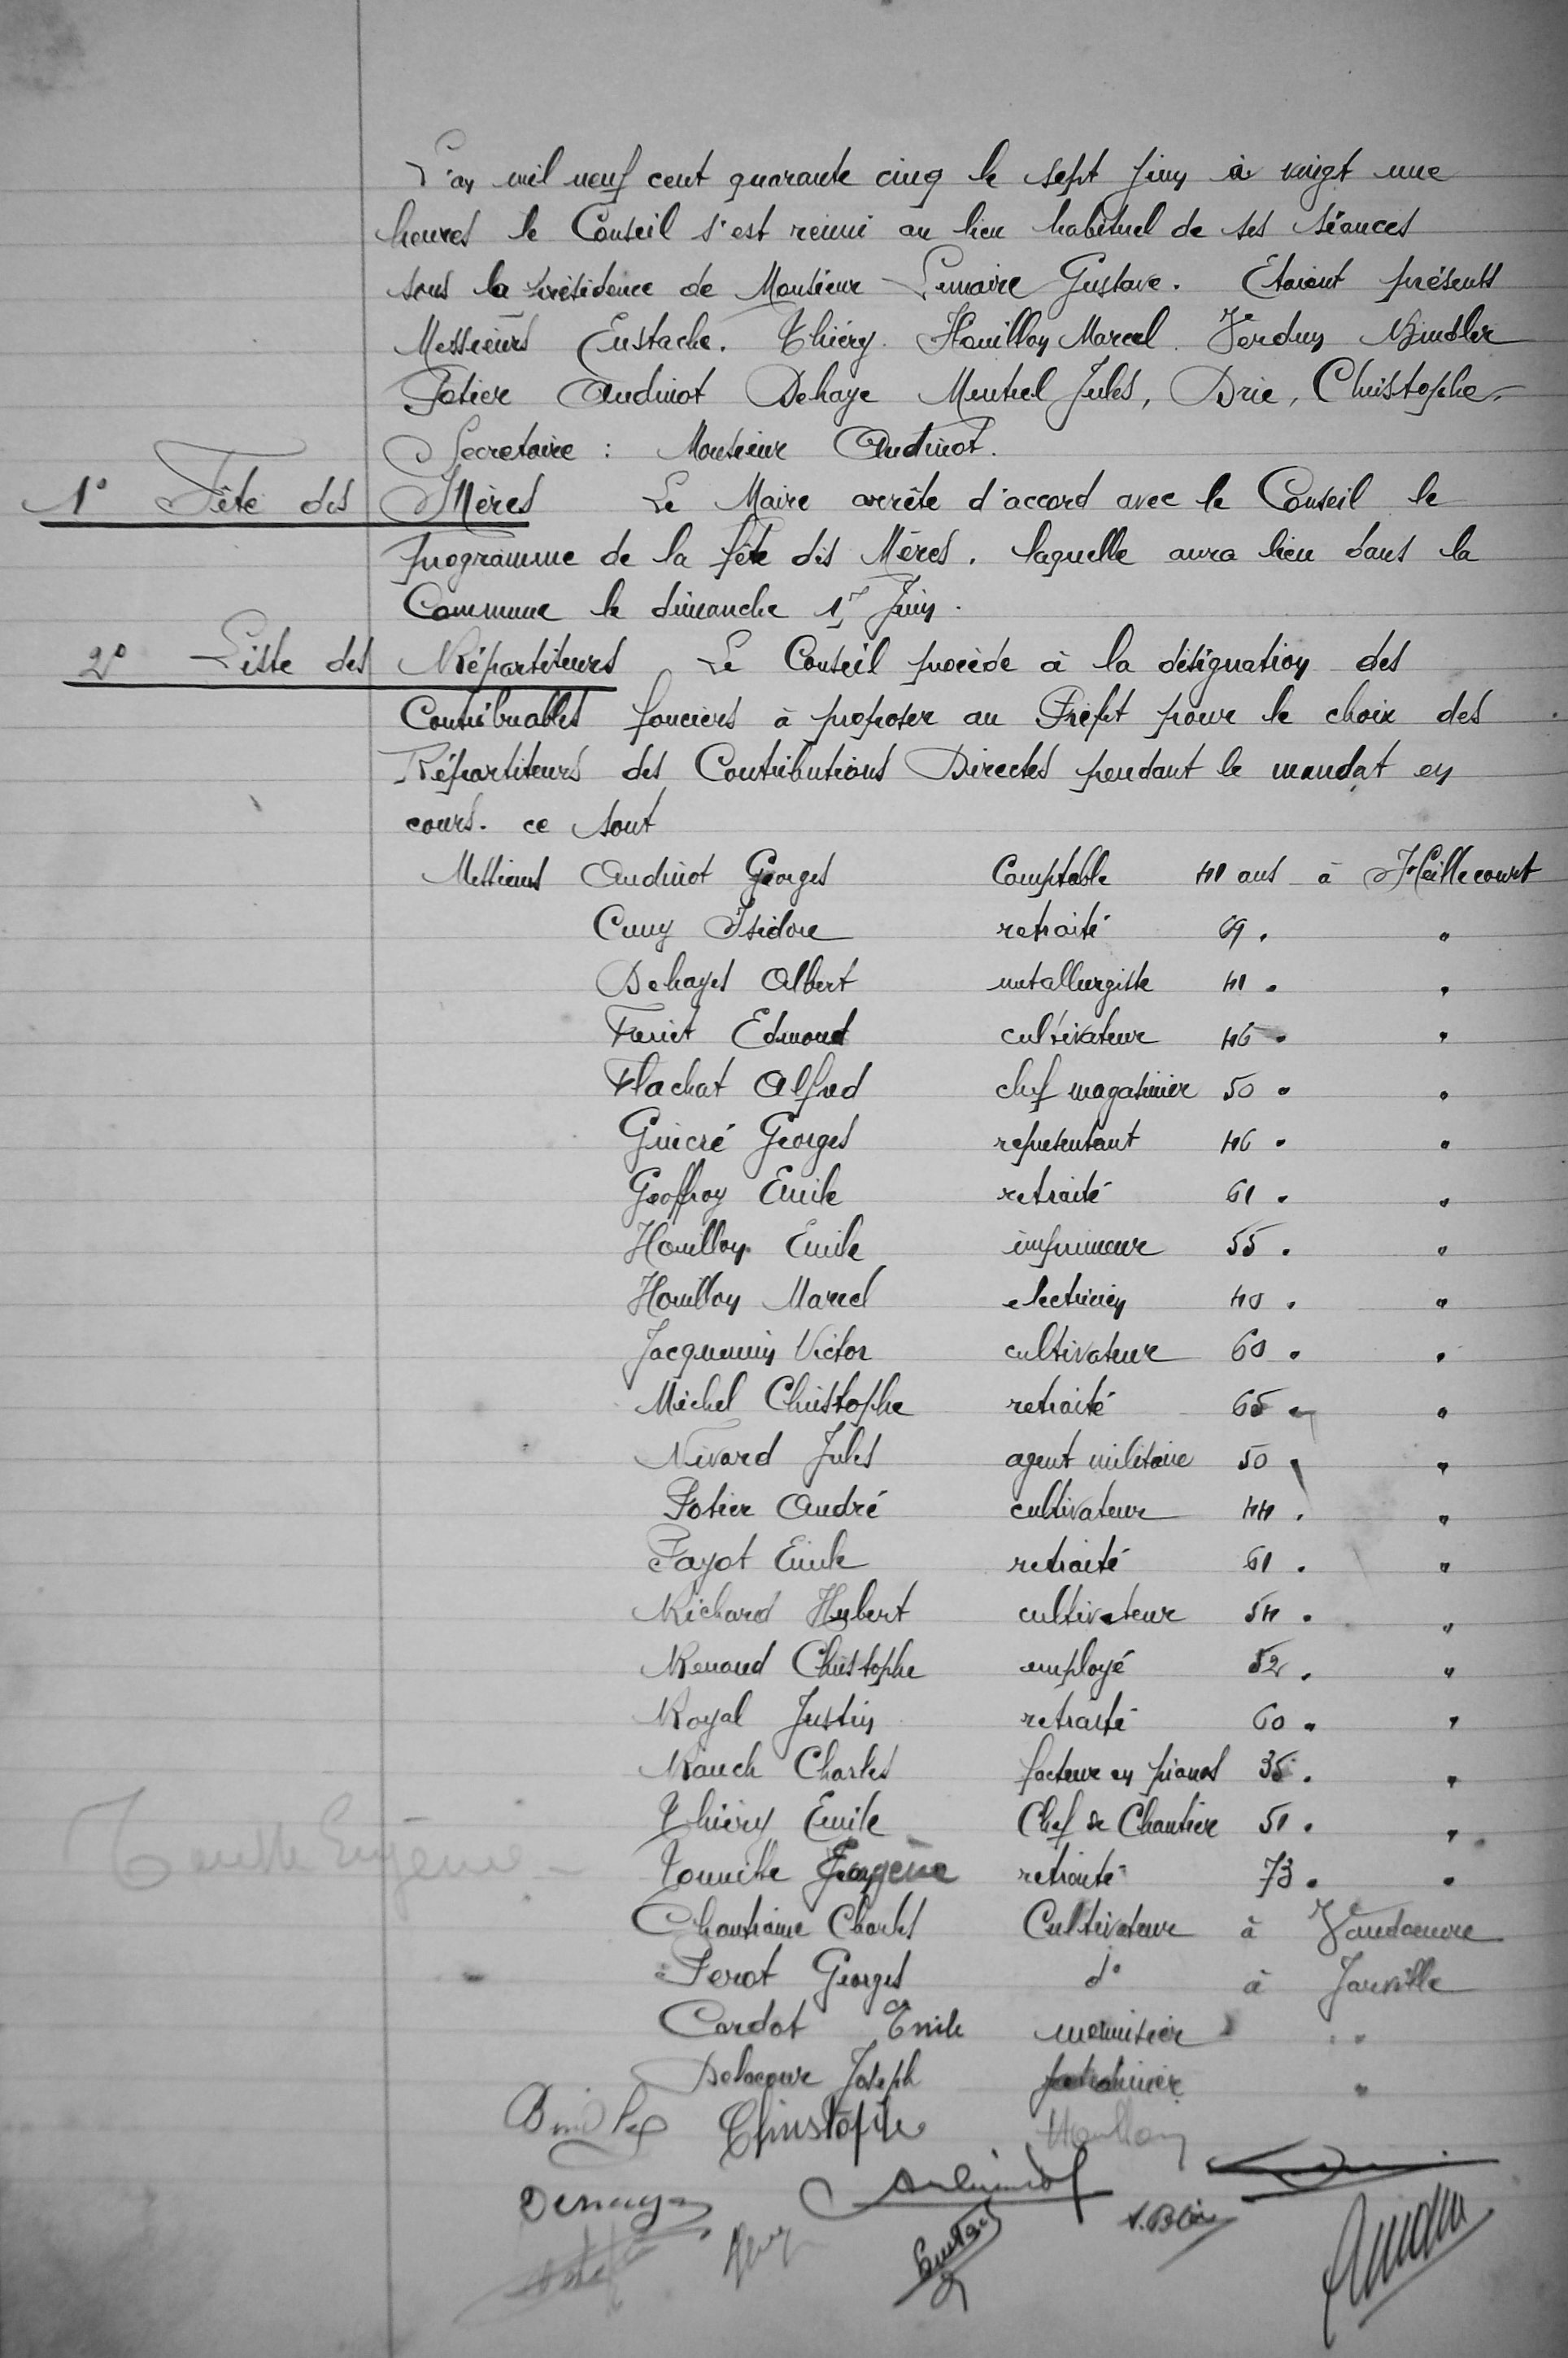 L'an mil neuf cent quarante cinq le sept juin à vingt une
heures le Conseil s'est réuni au lieu habituel de ses séances
sous la présidence de Monsieur Lemaire Gustave. Etaient présents
Messieurs Eustache. Thiéry. Houillon Marcel. Verdun
Potier Audinot Dehaye Jules, Brie, Christophe.
Secretaire : Monsieur Audinot.
1° Fête des Mères Le Maire arrête d'accord avec le Conseil le
programme de la fête des Mères. laquelle aura lieu dans la
Commune le dimanche 17 Juin.
2° Liste des Répartiteurs Le Conseil procède à la désignation des
Contribuables fonciers à proposer au Préfet pour le choix des
Répartiteurs des Contributions Directes pendant le mandat en
cours. ce sont
Messieurs Audinot Georges Comptable 41 ans à Heillecourt
Cuny Isidore retraité 69 " "
Dehayes Albert metallurgiste 41 " "
Feriet Edmond cultivateur 46 " "
Flachat Alfred chef magasinier 50 " "
Georges representant 46 " "
Geoffroy Emile retraité 61 " "
Houillon Emile imprimeur 55 " "
Houillon Marcel electricien 40 " "
Jacquemin Victor cultivateur 60 " "
Michel Christophe retraité 65 " "
Nivard Jules agent militaire 50 " "
Potier André cultivateur 44 " "
Payot Emile retraité 61 " "
Richard Hubert cultivateur 54 " "
Renaud Christophe employé 52 " "
Royal Justin retraité 60 " "
Rauch Charles facteur en pianos 35 " "
Thiéry Emile Chef de Chantier 51 " "
Eugène retraité 73 " "
Chantraine Charles Cultivateur à Vandoeuvre
Perot Georges d° à Jarville
Cardot Emile menuisier " "
Delacour Joseph "
Christophe Houillon
Dehaye Audinot